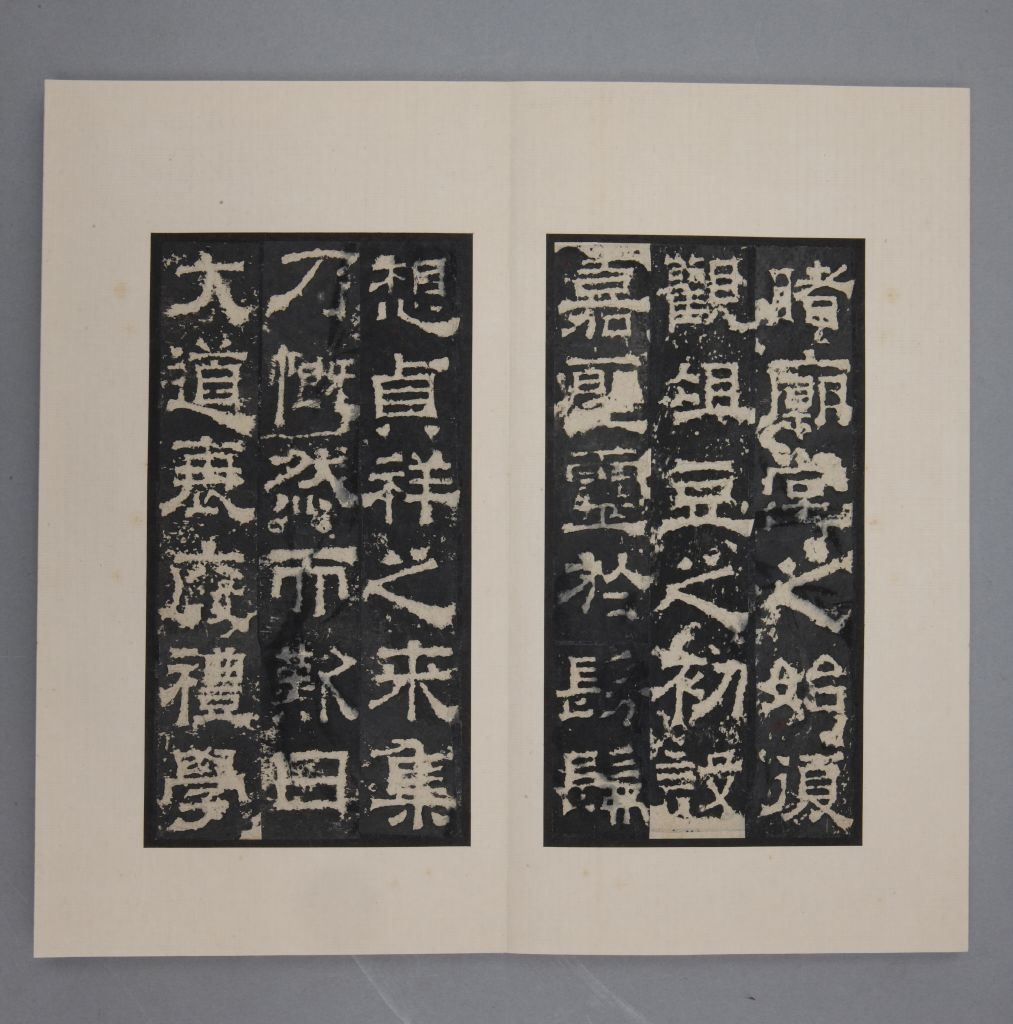 睹廟堂之始復
觀俎豆之初設
嘉聖靈於髣髴
想貞祥之來集
乃慨然而歎曰
大道衰廢禮學